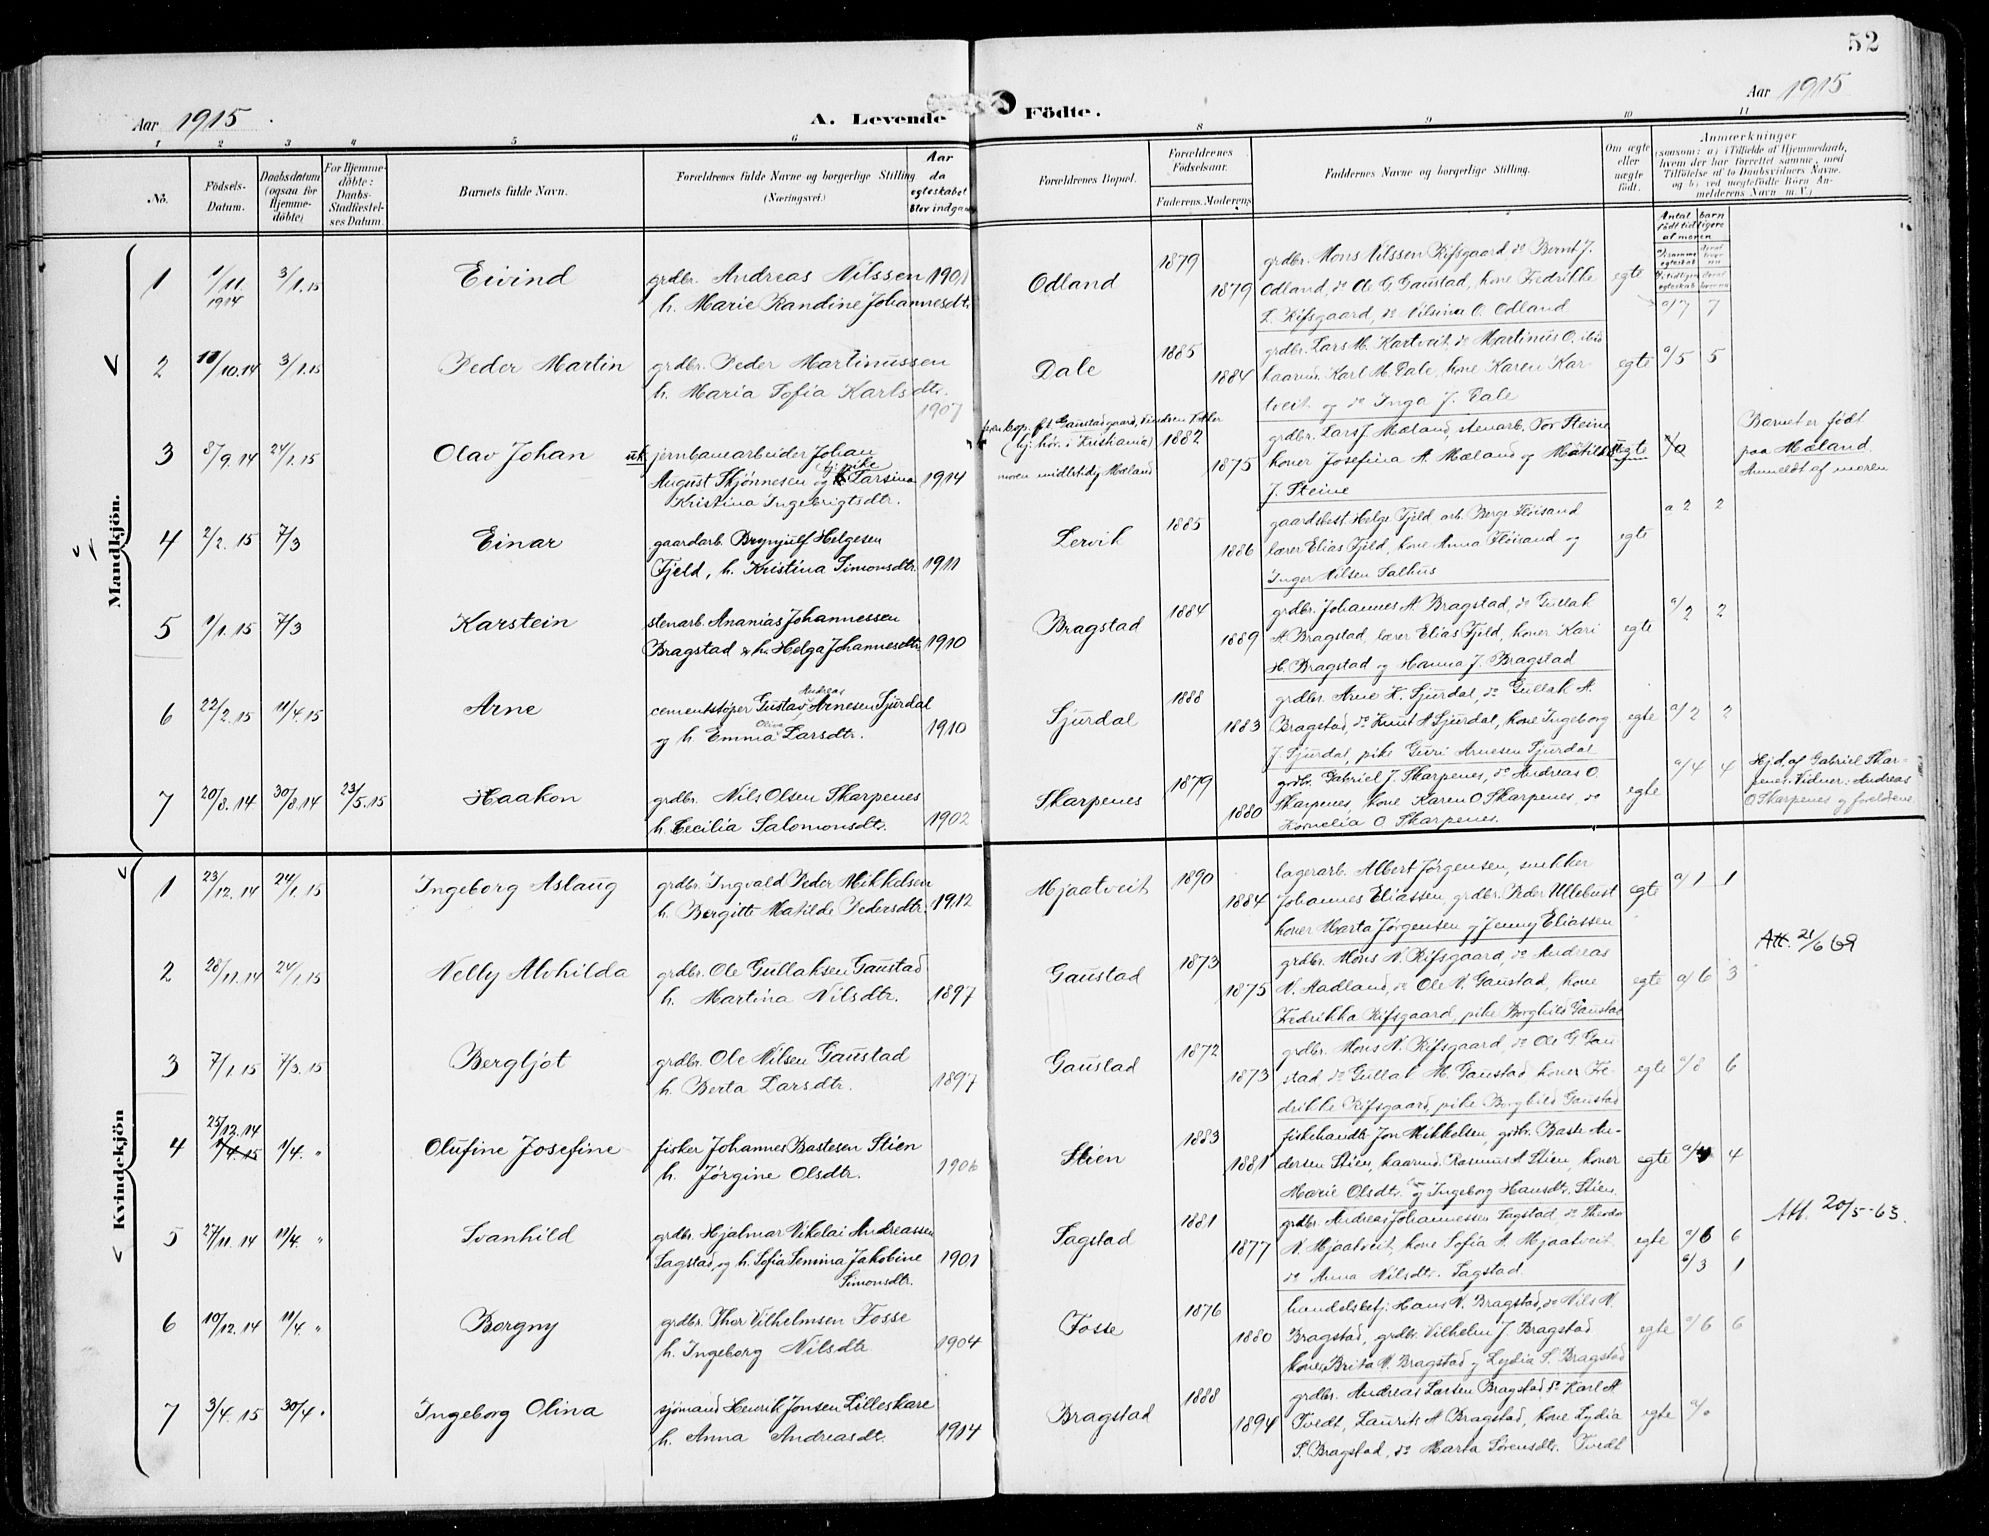 52
Aar 1915
A. Levende Födte.
Aar 1915
1 2 3 4 5 6 8 9 10 11
No.
Födsels-
Datum.
Daabsdatum
(ogsaa for
Hjemme-
döbte)
For Hjemme-
döbte:
Daabs-
Stadfæstel-
ses Datum
Barnets fulde Navn.
Forældrenes fulde Navne og borgerlige Stilling
(Næringsvei.)
Aar
da
egteskabet
blev indgaa
Forældrenes Bopæl.
Forældrenes
Födselsaar.
Faderens. Moderens
Faddernes Navne og borgerlige Stilling.
Om ægte
eller
uægte
födt.
Anmærkninger
(saasom: a) i Tilfælde af Hjemmedaab,
hvem der har forrettet samme, med
Tilföielse af to Daabsvidners Navne.
og b) ved uægtefödte Börn An-
melderens Navn m. V.)
Antal barn
födt tidligere
af moren
Mandkjön.
1 1/11 1914 3/1.15 Eivind
grdbr. Andreas Nilssen 1901
h. Marie Randine Johannesdtr.
Odland 1879 1879
grdbr. Mons Nilssen Rifsgaard, do Bernt J.
Odland, do Ole G. Gaustad, kone Fredrikke
L. Rifsgaard, do Nilsina O. Odland
egte a/7 7
2 11/10.14 3/1.15 Peder Martin
grdbr. Peder Martinussen
h. Maria Sofia Karlsdtr.
1907
Dale 1885 1884
grdbr. Lars M. Kartveit, do Martinus O. ibid
haarm. Karl M. Dale, kone Karen Kar-
tveit og do Inga J. Dale
egte a/5 5
3 8/9.14 24/1.15 Olav Johan
jernbanearbeider Johan
August Skjønnesen og tj. pike Larsina 1914
Kristina Ingebrigtsdtr.
(hj. hør. i Kristiania)
moren midlertidig Mæland
1882 1875
grdbr. Lars J. Mæland, stenarb. Tor Steine
koner Josefina A. Mæland og Matilde
J. Steine
Barnet er født
paa Mæland
Anmeldt af moren
4 2/2.15 7/3 Einar
gaardarb. Brynjulf Helgesen
Fjeld, h. Kristina Simonsdtr. 1911
Lervik 1885 1886
gaardsbest. Helge Fjeld, arb. Berge Fløisand
lærer Elias Fjeld, kone Anna Fløisand og
Inger Nilsen Salhus
egte a 2 2
5 1/1.15 7/3 Karstein
stenarb. Ananias Johannessen
Bragstad & h. Helga Johannesdtr. 1910
Bragstad 1884 1889
grdbr. Johannes A. Bragstad, do Gullak
A. Bragstad, lærer Elias Fjeld, koner Kari
H. Bragstad og Hanna J. Bragstad
egte a/2 2
6 22/2.15 11/4.15 Arne
cementstøper Gustav Andreas Arnesen Sjurdal
og h. Emma Oliva Larsdtr. 1910
Sjurdal 1888 1883
grdbr. Arne K. Sjurdal, do Gullak A.
Bragstad, do Knut A Sjurdal, kone Ingeborg
J. Sjurdal, pike Guri Arnesen Sjurdal
egte a/2 2
7 20/8.14 30/8.14 23/5.15 Haakon
grdbr. Nils Olsen Skarpenes
h. Cecilia Salomonsdtr. 1902
Skarpenes 1879 1880
grdbr. Gabriel J. Skarpenes, do Andreas O.
Skarpenes, kone Karen O Skarpenes, do
Kornelia O Skarpenes.
egte a/4 4
Hjd. af Gabriel Skar-
penes. Vidner: Andreas
O Skarpenes og forældrene.
Kvindekjön
1 23/12.14 24/1.15 Ingeborg Aslaug
grdbr. Ingvald Peder Mikkelsen
h. Bergitte Matilde Pedersdtr. 1912
Mjaatveit 1890 1884
lagerarb. Albert Jørgensen, snekker
Johannes Eliassen, grdbr. Peder Ullebust
koner Marta Jørgensen og Jenny Eliassen
egte a/1 1
2 28/11.14 24/1.15 Nelly Alvhilda
grdbr. Ole Gullaksen Gaustad
h. Martina Nilsdtr. 1897
Gaustad 1873 1875
grdbr. Mons N. Rifsgaard, do Andreas
N. Aadland, do Ole N. Gaustad, kone
Fredrikka Rifsgaard, pike Borghild Gaustad
egte a/6 3
Att. 21/6 69
3 7/1.15 7/3.15 Bergljot
grdbr. Ole Nilsen Gaustad
h. Berta Larsdtr. 1897
Gaustad 1872 1873
grdbr. Mons N. Rifsgaard, do Ole G Gau
stad, do Gullak M. Gaustad, koner Fre-
drikke Rifsgaard, pike Borghild Gaustad
egte a/8 6
4 25/12.14 11/4. " Olufine Josefine
fisker Johannes Bastesen Stien
h. Jørgine Olsdtr. 1906
Stien 1883 1881
fiskehandr. Jon Mikkelsen, grdbr. Baste An-
dersen Stien, haarm. Rasmus A Stien, koner
Marie Olsdtr. og Ingeborg Hansdtr. Stien.
egte a/4 4
5 27/11.14 11/4. " Svanhild
grdbr. Hjalmar Nikolai Andreassen
Sagstad, og h. Sofia Semina Jakobine 1901
Simonsdtr.
Sagstad 1881 1877
grdbr. Andreas Johannessen Sagstad, do Theodo
N. Mjaatveit, kone Sofia A. Mjaatveit
do Anna Nilsdtr. Sagstad.
egte a/6 6
a/3 1
Att. 20/5-63.
6 10/12.14 11/4. " Borgny
grdbr. Thor Vilhelmsen Fosse
h. Ingeborg Nilsdtr 1904
Fosse 1876 1880
handelsbetj. Hans N. Bragstad, do Nils N.
Bragstad, grdbr. Vilhelm J. Bragstad.
koner Brita N. Bragstad og Lydia S. Bragstad
egte a/6 6
7 3/4.15 30/4 " Ingeborg Olina
sjømand Henrik Jonsen Lilleskare
h. Anna Andreasdtr. 1914
Bragstad 1888 1894
grdbr. Andreas Larsen Bragstad, do Karl A
Tvedt, Laurits A Bragstad, kone Lydia
S. Bragstad, do Marta Sørensdtr. Tvedt
egte a/0